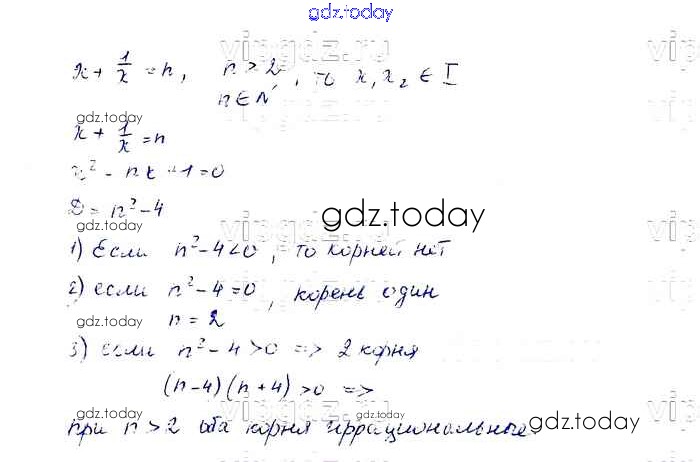 gdz.today
vipgdz.ru
x + 1/x = n, n > 2, n ∈ N, то x₁ x₂ ∈ I
gdz.today
x + 1/x = n
x² - nx + 1 = 0
D = n² - 4
gdz.today
gdz.today
1) Если n² - 4 < 0, то корней нет
2) если n² - 4 = 0, корень один
gdz.today
n = 2
3) если n² - 4 > 0 => 2 корня
(n-4)(n+4) > 0 =>
gdz.today
gdz.today
gdz.today
при n > 2 оба корня иррациональные.